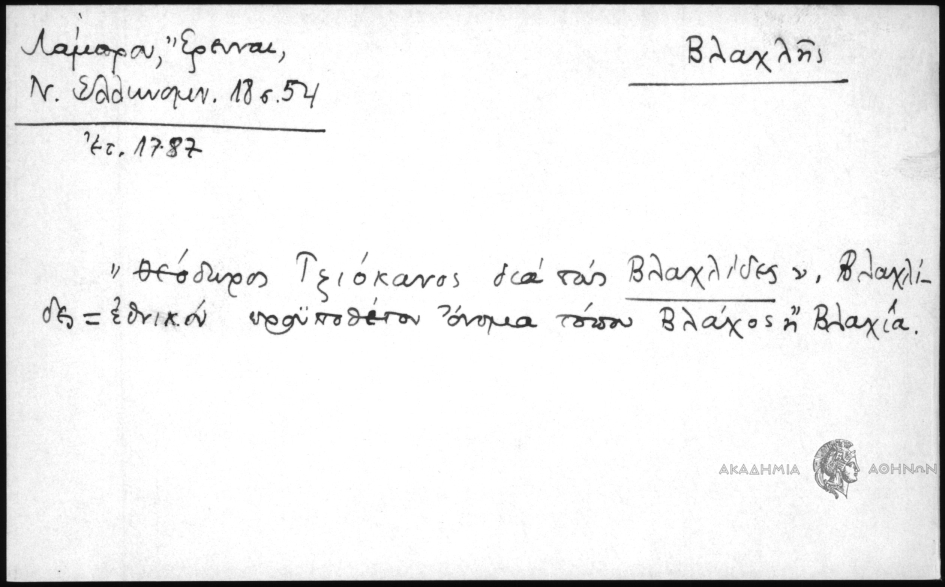 Λάμπρου, Ἔρευναι,
Ν. Ἑλληνομν. 18 σ. 54
Ἔτ. 1787
Βλαχλῆς
"Θεόδωρος Τζιόκανος διὰ τοὺς Βλαχλίδες", Βλαχλί-
δες = ἐθνικόν προϋποθέτον ὄνομα τόπου Βλάχος ἢ Βλαχία.
ΑΚΑΔΗΜΙΑ ΑΘΗΝΩΝ